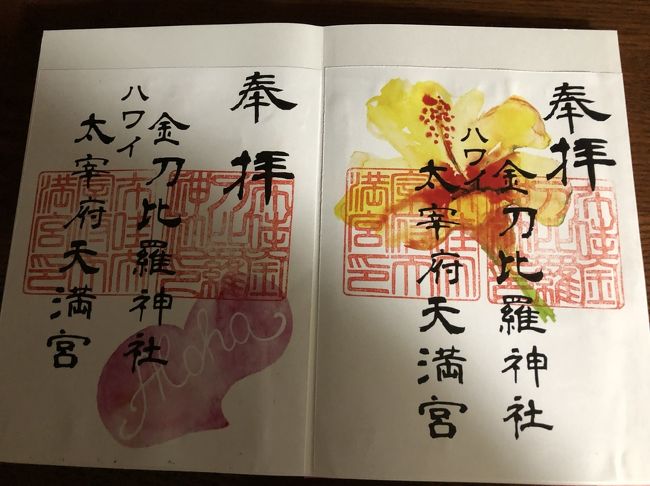 奉拝
ハワイ
金刀比羅神社
太宰府天満宮
奉拝
ハワイ
金刀比羅神社
太宰府天満宮
Aloha